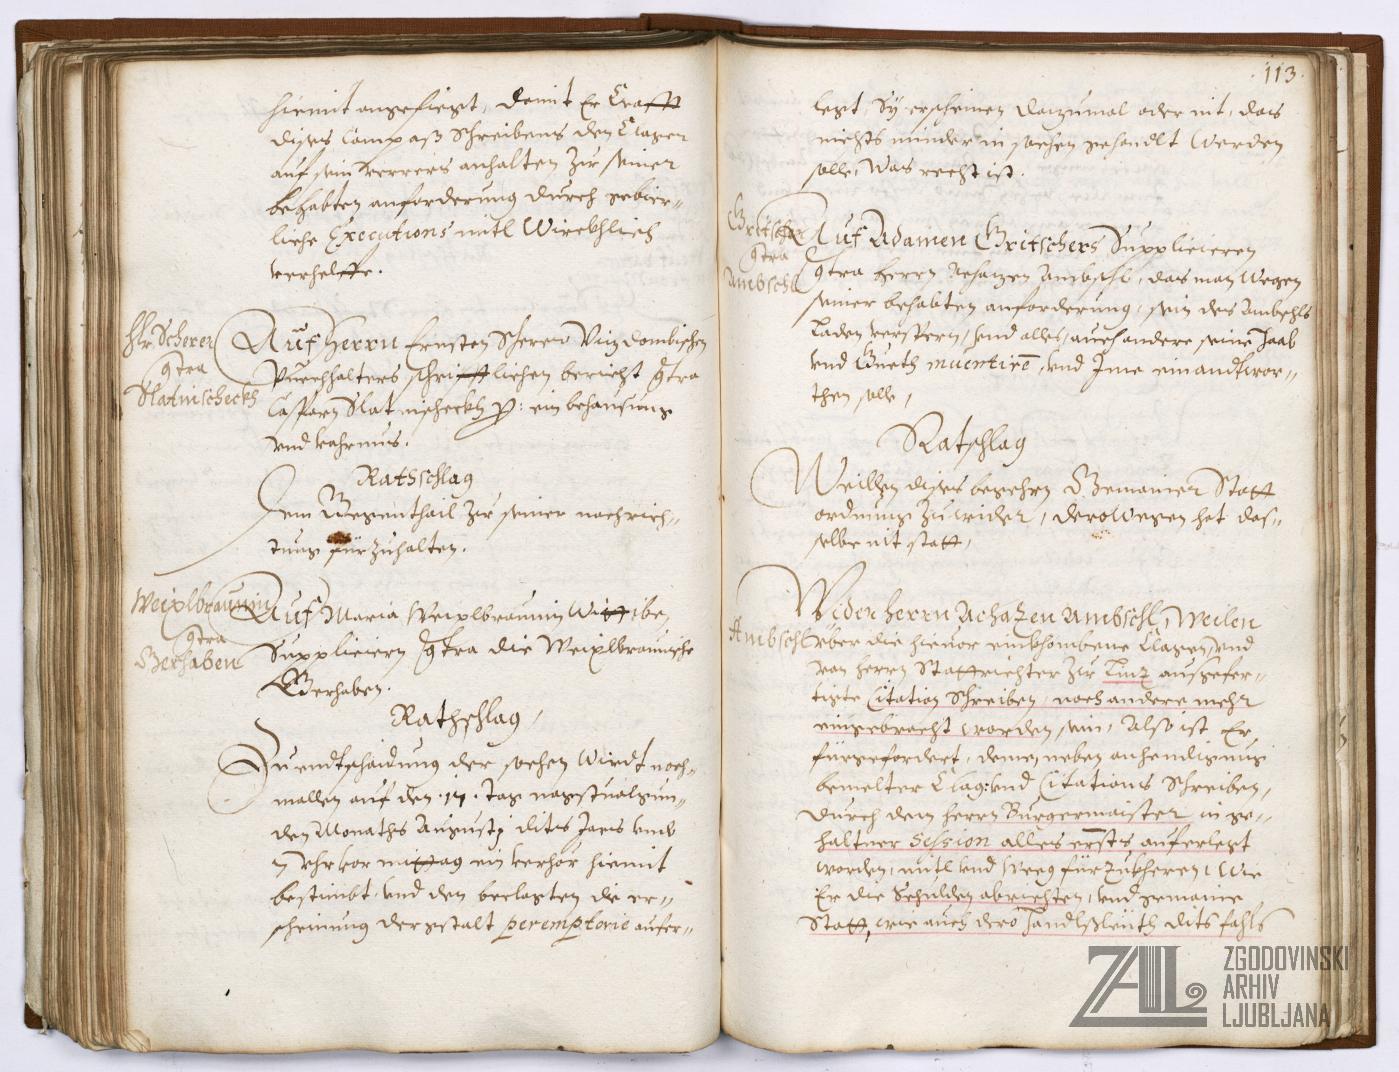 hiemit angefiegt, damit Er Crafft
dises Compaß Schreibens den Clager
auf sein ferrers anhalten zu seiner
behabten anforderung durch gebier-
liche Executions mitl Wirckhlich
verhelffe.
Hr. Scherer
contra
Slatnischeckh
Auf Herrn Ernsten Scherer Vizdombischen
Puechhalters schrifftlichen bericht contra
Caspern Slatnischeckh per: ein behausung
vnd fahrnus.
Rathschlag
Dem Gegenthail zu seiner nachrich-
tung fürzuhalten.
Weixlbraunin
contra
Gerhaben
Auf Maria Weixlbraunin Wittiben
Supplicirn contra die Weixlbraunische
Gerhaben.
Rathschlag,
Zu endtschaidung der sachen Wirdt noch-
mallen auf den .17. tag negstvolgun-
den Monaths Augusti dits Jars vmb
7 Vhr vor mittag ein verhör hiemit
bestimbt, vnd den beclagten die er-
scheinung dergstalt peremptorie aufer-
.113.
legt, Sy erscheinen darzumal oder nit, das
nichts minder in sachen gehandlt Werden
solle, Was recht ist.
Gritscher
contra
Ambschl
Auf Adamen Gritschers Supplicieren
contra Herrn Achazen Ambschl, das man Wegen
seiner behabten anforderung, sein des Ambschls
Laden verspern, vnd alles, auch andere seine Haab
vnd Gueth inuentirn, vnd Ime einandtwor-
then solle,
Ratschlag
Weillen dises begehrn Gemainer Statt
ordnung zuwider, derowegen hat das-
selbe nit statt,
Ambschl
Wider Herrn Achazen Ambschl, Weilen
Vber die hieuor einkhombene Clagen, vnd
von Herrn Stattrichter zu Linz aussgefer-
tigte Citation Schreiben, noch andere mehr
eingebracht worden sein, Also ist Er
fürgefordert, deme neben anhendigung
bemelter Clag: vnd Citations Schreiben,
durch den Herrn Burgermaister in ge-
haltner Session alles ernsts auferlegt
worden, mitl vnd Weeg fürzukheren, Wie
Er die Schulden abrichten, vnd gemaine
Statt, wie auch dero Handlssleüth dits fahls
ZGODOVINSKI
ARHIV
LJUBLJANA